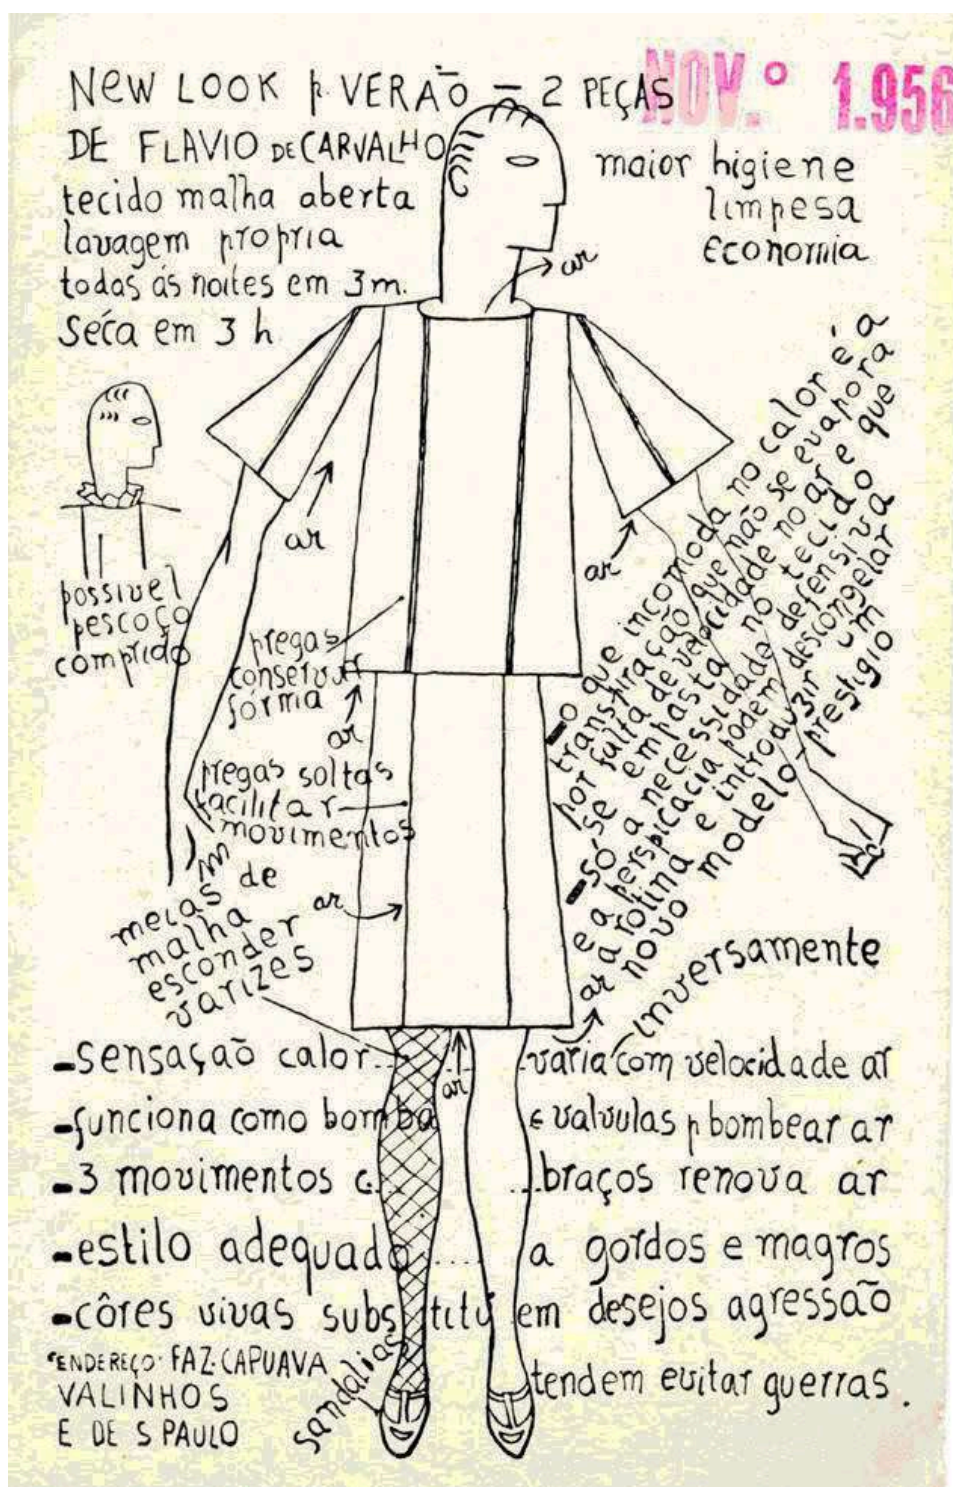 NEW LOOK p. VERÃO – 2 PEÇAS
DE FLAVIO DE CARVALHO
NOV.º 1.956
tecido malha aberta
lavagem propria
todas ás noites em 3m.
Séca em 3 h
maior higiene
limpesa
economia
ar
possivel
pescoço
comprido
ar
ar
pregas
conservar
fórma
ar
pregas soltas
facilitar
movimentos
ar
meias de
malha
esconder
varizes
-o que incomoda no calor é a
transpiração que não se evapora
por falta de velocidade no ar e que
se empasta no tecido
-só a necessidade defensiva
e a perspicácia podem descongelar
a rotina e introduzir um
novo modelo - prestigio
ar
inversamente
-sensação calor... varia com velocidade ar
ar
-funciona como bomba e valvulas p bombear ar
-3 movimentos c. ...braços renova ar
-estilo adequado .... a gordos e magros
-côres vivas substituem desejos agressão
tendem evitar guerras.
ENDEREÇO: FAZ. CAPUAVA
VALINHOS
E DE S PAULO
sandalias